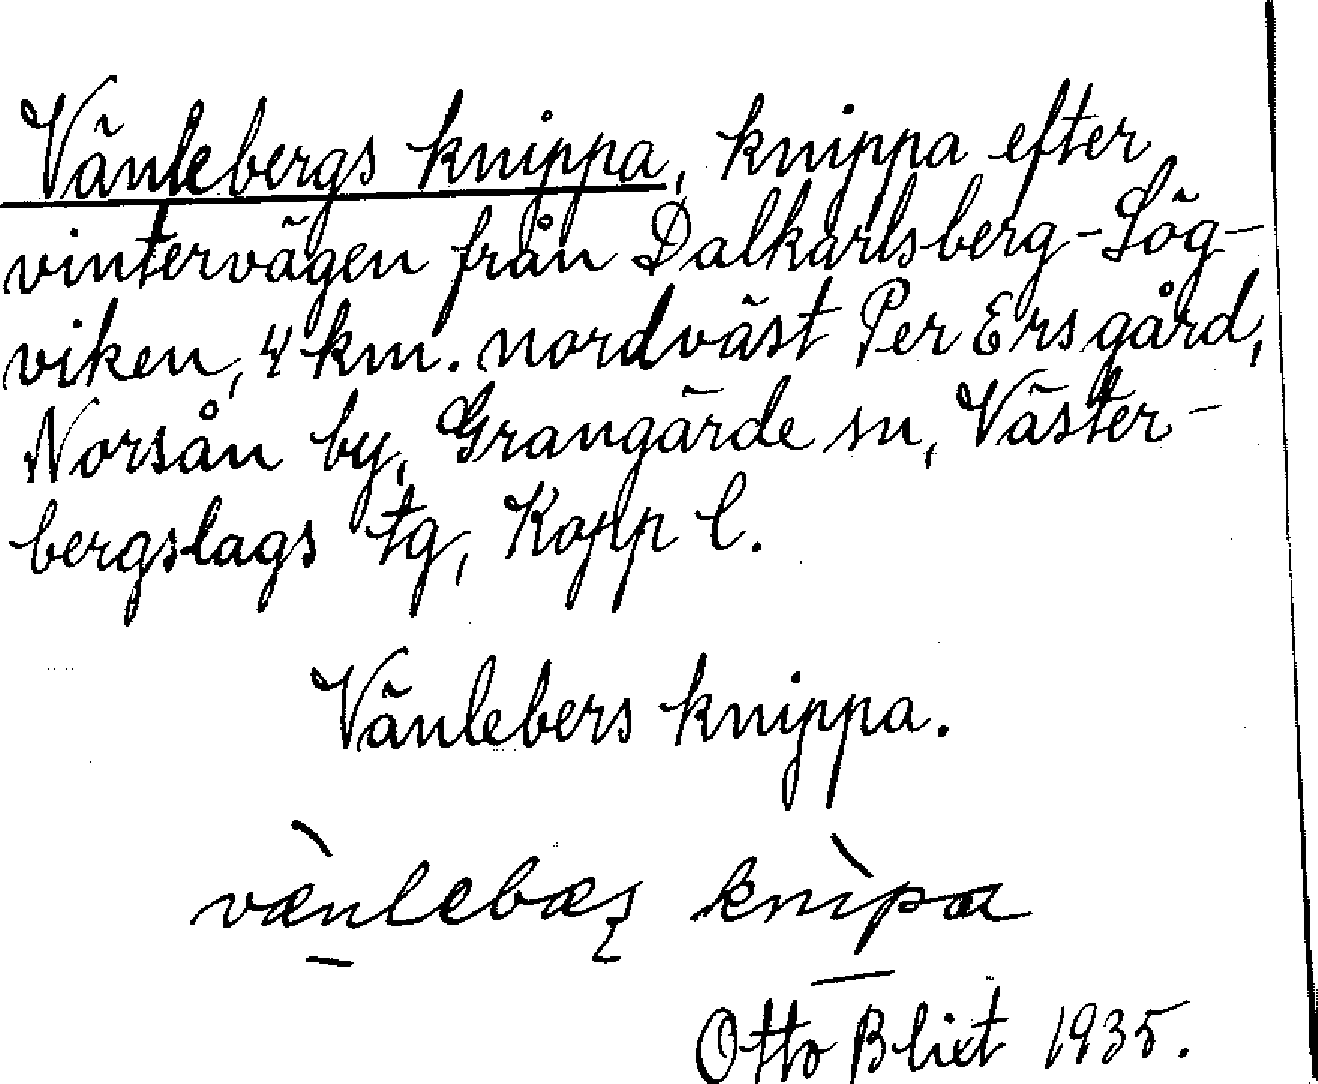 Vänlebergs knippa, knippa efter
vintervägen från Dalkarlsberg-Sög-
viken, 4 km. nordväst Per Ersgård,
Norsån by, Grangärde sn, Väster-
bergslags tg, Kopp l.
Vänlebers knippa.
vænlebæʂ knipa
Otto Blixt 1935.